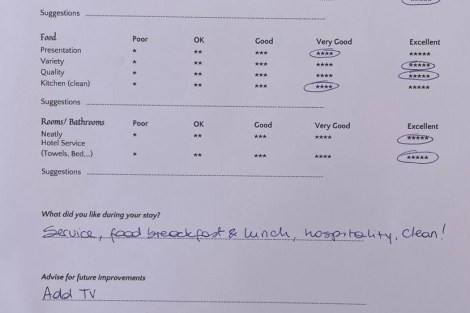 Suggestions
Food Poor OK Good Very Good Excellent
Presentation * ** *** **** *****
Variety * ** *** **** *****
Quality * ** *** **** *****
Kitchen (clean) * ** *** **** *****
Suggestions
Rooms/ Bathrooms Poor OK Good Very Good Excellent
Neatly * ** *** **** *****
Hotel Service
(Towels, Bed,..) * ** *** **** *****
Suggestions
What did you like during your stay?
Service, food breackfast & lunch, hospitality, clean!
Advise for future improvements
Add TV